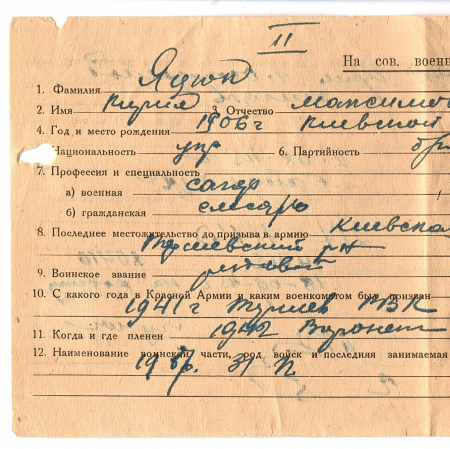 II
На сов. воен
1. Фамилия Яцюк
2. Имя 3. Отчество Максимо
4. Год и место рождения 1906 г Киевской
Национальность укр 6. Партийность
7. Профессия и специальность
а) военная сапер
б) гражданская слесарь
8. Последнее местожительство до призыва в армию Киевская
р-н
9. Воинское звание рядовой
10. С какого года в Красной Армии и каким военкоматом был призван
1941 г РВК
11. Когда и где пленен 1942 Воронеж
12. Наименование воинской части, род войск и последняя занимаемая